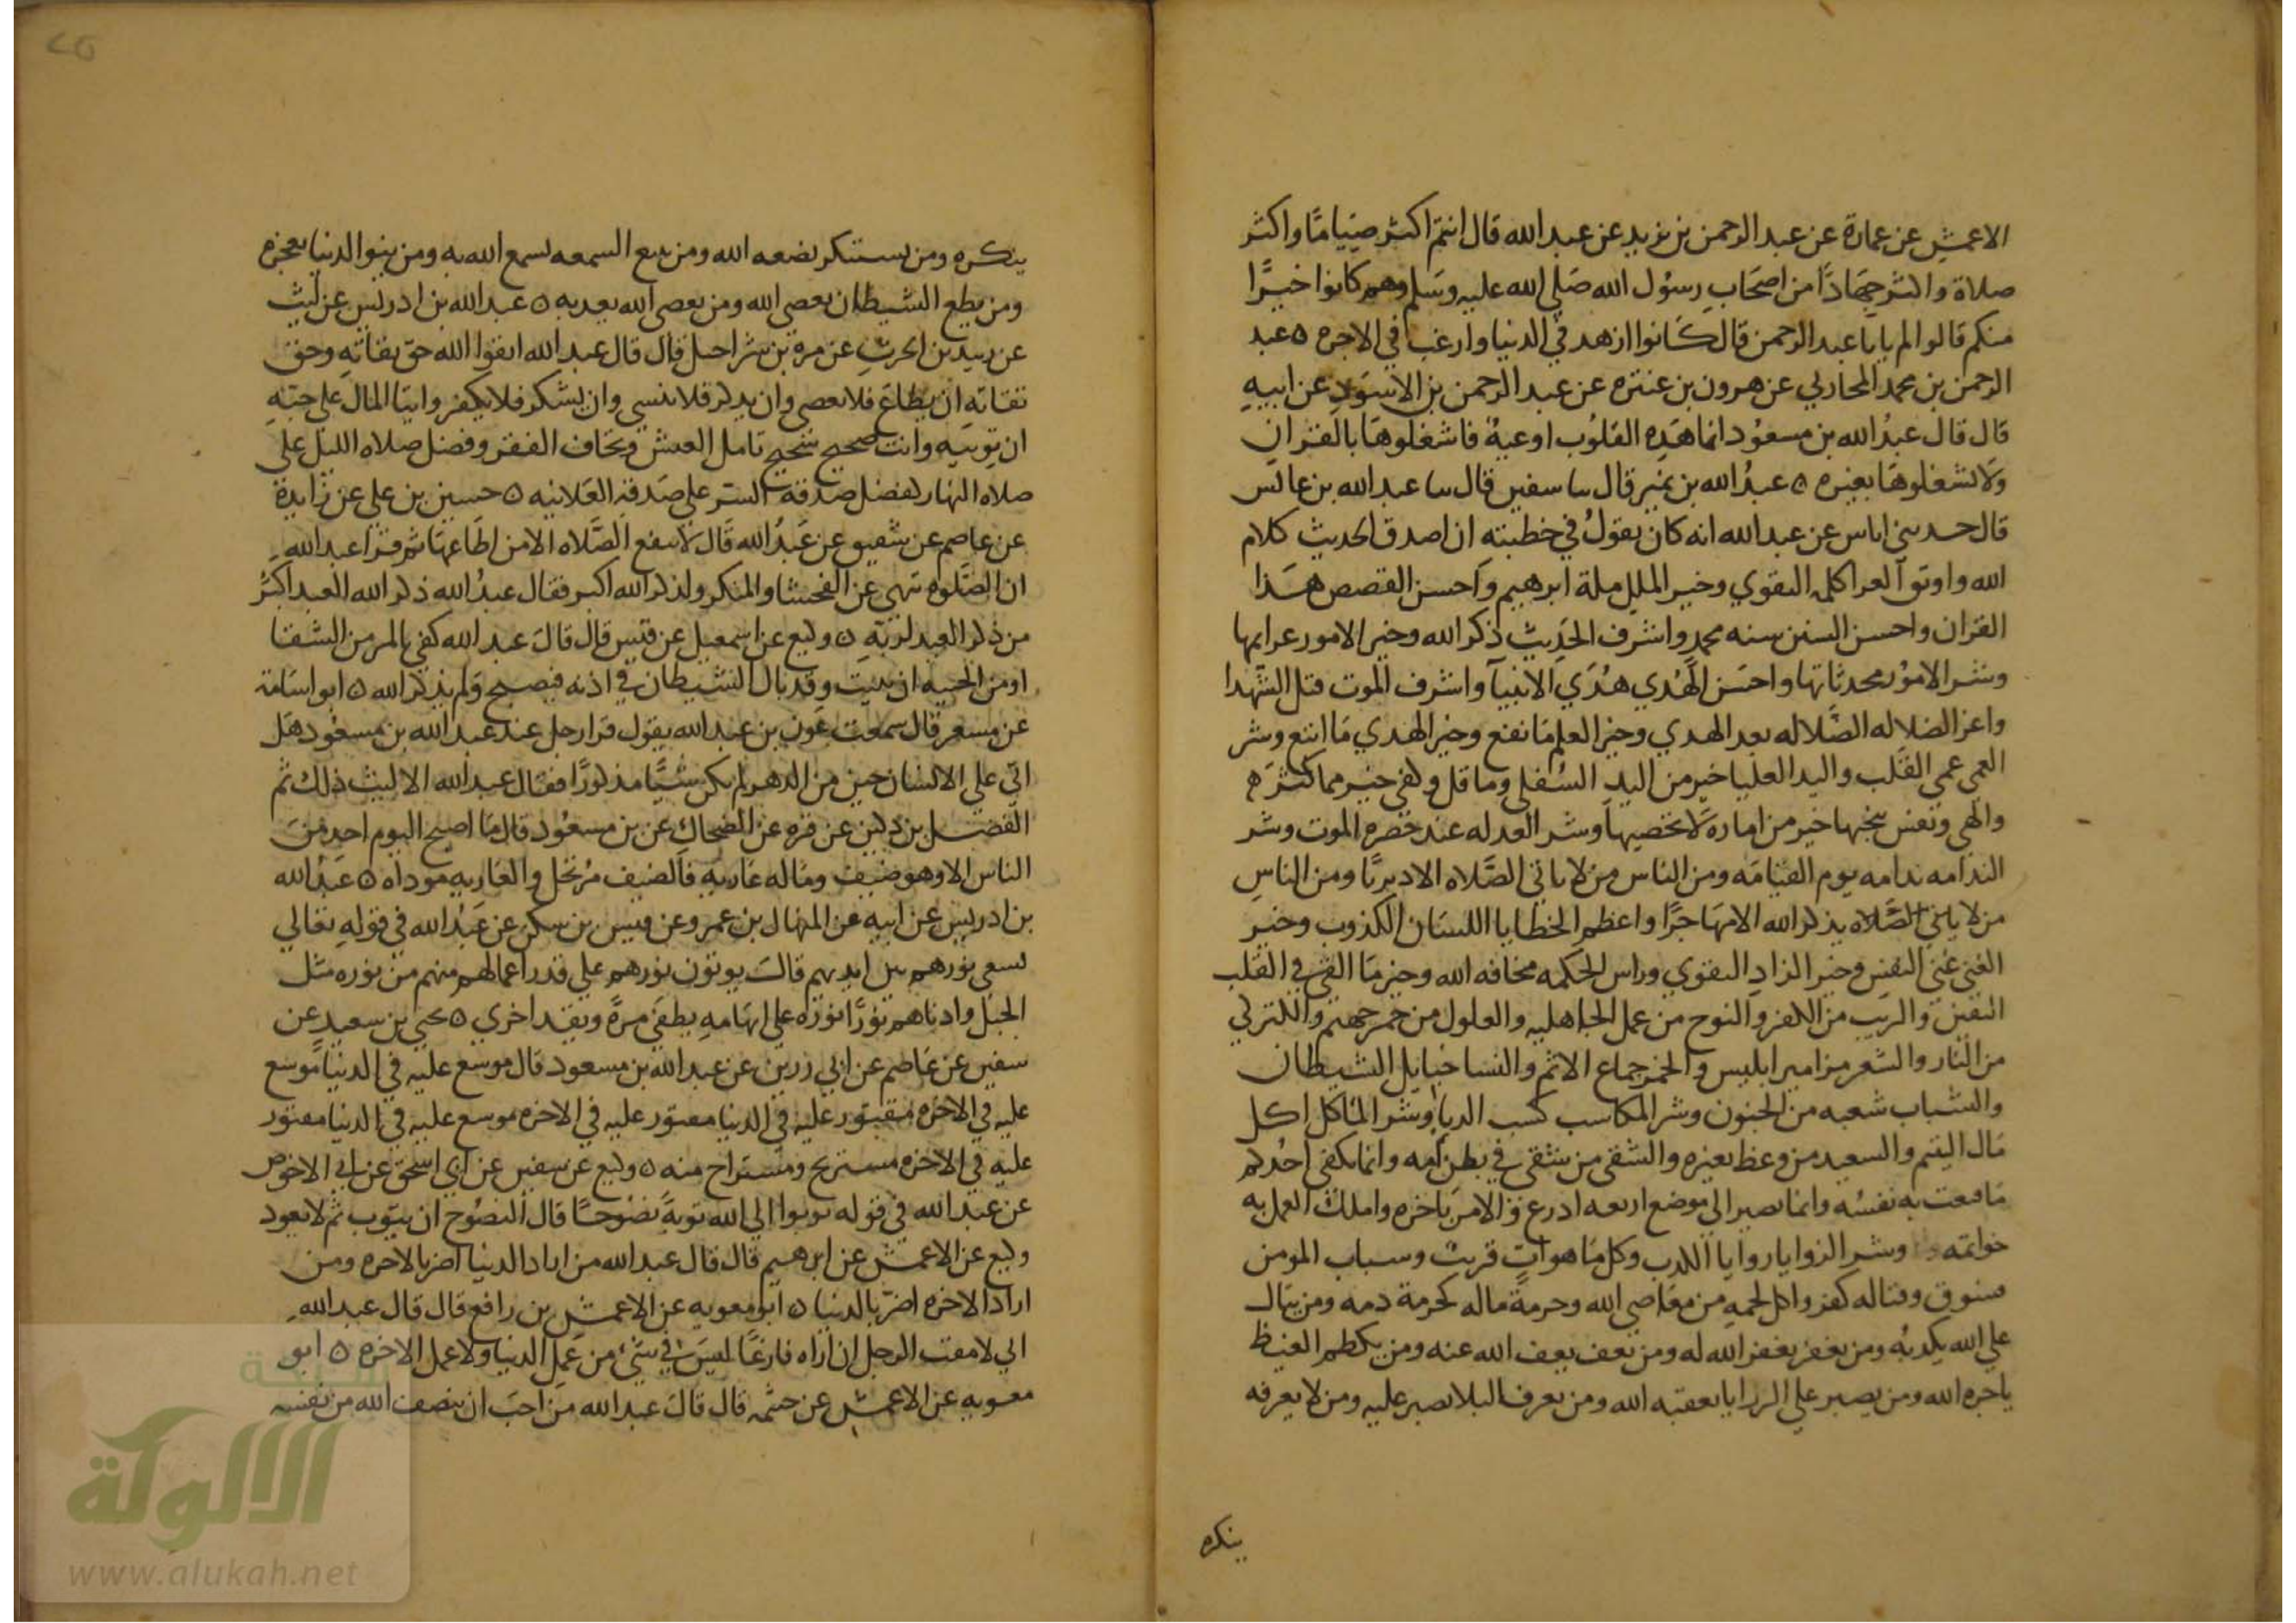 الاعمش عن عمارة عن عبد الرحمن بن يزيد عن عبد الله قال انتم اكثر صياما واكثر
صلاة واكثر جهادًا من اصحاب رسول الله صلي الله عليه وسلم وهم كانوا خيرًا
منكم قالوا لم يا با عبد الرحمن قال كانوا ازهد في الدنيا وارغب في الاخره ٥ عبد
الرحمن بن محمد المحاربي عن هرون بن عنتره عن عبد الرحمن بن الاسود عن ابيه
قال قال عبد الله بن مسعود انما هذه القلوب اوعية فاشغلوها بالقران
ولا تشغلوها بغيره ٥ عبد الله بن نمير قال سا سفين قال سا عبد الله بن عابس
قال حدثني اناس عن عبد الله انه كان يقول في خطبته ان اصدق الحديث كلام
الله واوثق العرا كلمه التقوي وخير الملل ملة ابرهيم واحسن القصص هذا
القران واحسن السنن سنه محمد واشرف الحديث ذكر الله وخير الامور عزايمها
وشر الامور محدثاتها واحسن الهدي هدي الانبيا واشرف الموت قتل الشهدا
واعز الضلاله الضلاله بعد الهدي وخير العلم ما نفع وخير الهدي ما اتبع وشر
العمي عمي القلب واليد العليا خير من اليد السفلي وما قل وكفي خير مما كثر
والهي ونفس تنجيها خير من اماره لا تحصيها وشر العدله عند حضره الموت وشر
الندامه ندامه يوم القيامه ومن الناس من لا ياتي الصلاه الا دبريًا ومن الناس
من لا ياتي الصلاه يذكر الله الا مهاجرًا واعظم الخطايا اللسان الكذوب وخير
الغني غني النفس وخير الزاد التقوي وراس الحكمه مخافه الله وخير ما القي في القلب
اليقين والريب من الكفر والنوح من عمل الجاهليه والغلول من جمر جهنم والكنز كي
من النار والشعر مزامير ابليس والخمر جماع الاثم والنسا حبايل الشيطان
والشباب شعبه من الجنون وشر المكاسب كسب الربا وشر الماكل اكل
مال اليتيم والسعيد من وعظ بغيره والشقي من شقي في بطن امه وانما يكفي احدكم
ما قنعت به نفسه وانما يصير الي موضع اربعه ادرع والامر باخره واملك العمل به
خواتمه وشر الروايا روايا الكدب وكل ما هو ات قريب وسباب المومن
فسوق وقتاله كفر واكل لحمه من معاصي الله وحرمة ماله كحرمة دمه ومن يتال
علي الله يكذبه ومن يغفر يغفر الله له ومن يعف يعف الله عنه ومن يكظم الغيظ
ياجره الله ومن يصبر علي الرزايا يعقبه الله ومن يعرف البلا يصبر عليه ومن لا يعرفه
ينكره
ينكره ومن يستكبر يضعه الله ومن يبتغ السمعه يسمع الله به ومن ينوا الدنيا تعجزه
ومن يطع الشيطان يعصي الله ومن يعصي الله يعدبه ٥ عبد الله بن ادريس عن ليث
عن زبيد بن الحرث عن مره بن شراحيل قال قال عبد الله اتقوا الله حق تقاته وحق
تقاته ان يطاع فلا يعصي وان يذكر فلا ينسي وان يشكر فلا يكفر وايتا المال علي حبه
ان توتيه وانت صحيح شحيح تامل العيش وتخاف الفقر وفضل صلاه الليل علي
صلاه النهار كفضل صدقة السر علي صدقة العلانيه ٥ حسين بن علي عن زايدة
عن عاصم عن شقيق عن عبد الله قال لا تنفع الصلاه الا من اطاعها ثم قرا عبد الله
ان الصلوه تنهي عن الفحشا والمنكر ولذكر الله اكبر فقال عبد الله ذكر الله العبد اكبر
من ذكر العبد لربه ٥ وكيع عن اسمعيل عن قيس قال قال عبد الله كفي بالمر من الشقا
او من الخيبه ان يبيت وقد بال الشيطان في اذنه فيصبح ولم يذكر الله ٥ ابو اسامة
عن مسعر قال سمعت عون بن عبد الله يقول قرا رجل عند عبد الله بن مسعود هل
اتي علي الانسان حين من الدهر لم يكن شيًا مذكورًا فقال عبد الله الا ليت ذلك تم
الفضل بن دكين عن قره عن الضحاك عن بن مسعود قال ما اصبح اليوم احد من
الناس الا وهو ضيف وماله عاريه فالضيف مرتحل والعاريه موداه ٥ عبد الله
بن ادريس عن ابيه عن المنهال بن عمرو عن قيس بن سكن عن عبد الله في قوله تعالي
يسعي نورهم بين ايديهم قال يوتون نورهم علي قدر اعمالهم منهم من نوره مثل
الجبل وادناهم نورًا نوره علي ابهامه يطفي مرة ويقد اخري ٥ يحيي بن سعيد عن
سفين عن عاصم عن ابي رزين عن عبد الله بن مسعود قال موسع عليه في الدنيا موسع
عليه في الاخره مقتور عليه في الدنيا مقتور عليه في الاخره موسع عليه في الدنيا مقتور
عليه في الاخره مستريح ومستراح منه ٥ وكيع عن سفين عن ابي اسحق عن ابي الاحوص
عن عبد الله في قوله توبوا الي الله توبة نصوحًا قال النصوح ان يتوب ثم لا يعود
وكيع عن الاعمش عن ابرهيم قال قال عبد الله من اراد الدنيا اضر بالاخره ومن
اراد الاخره اضر بالدنيا ٥ ابو معويه عن الاعمش بن رافع قال قال عبد الله
اني لامقت الرجل ان اراه فارغًا ليس في شيء من عمل الدنيا ولا عمل الاخره ٥ ابو
معويه عن الاعمش عن خيثمه قال قال عبد الله من احب ان ينصف الله من نفسه
الألوكة
www.alukah.net